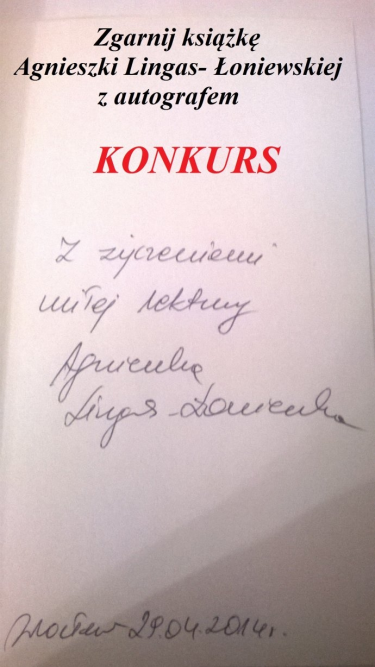 Zgarnij książkę
Agnieszki Lingas- Łoniewskiej
z autografem
KONKURS
Z życzeniami
miłej lektury
Agnieszka
Lingas-Łoniewska
Wrocław 29.04.2014r.